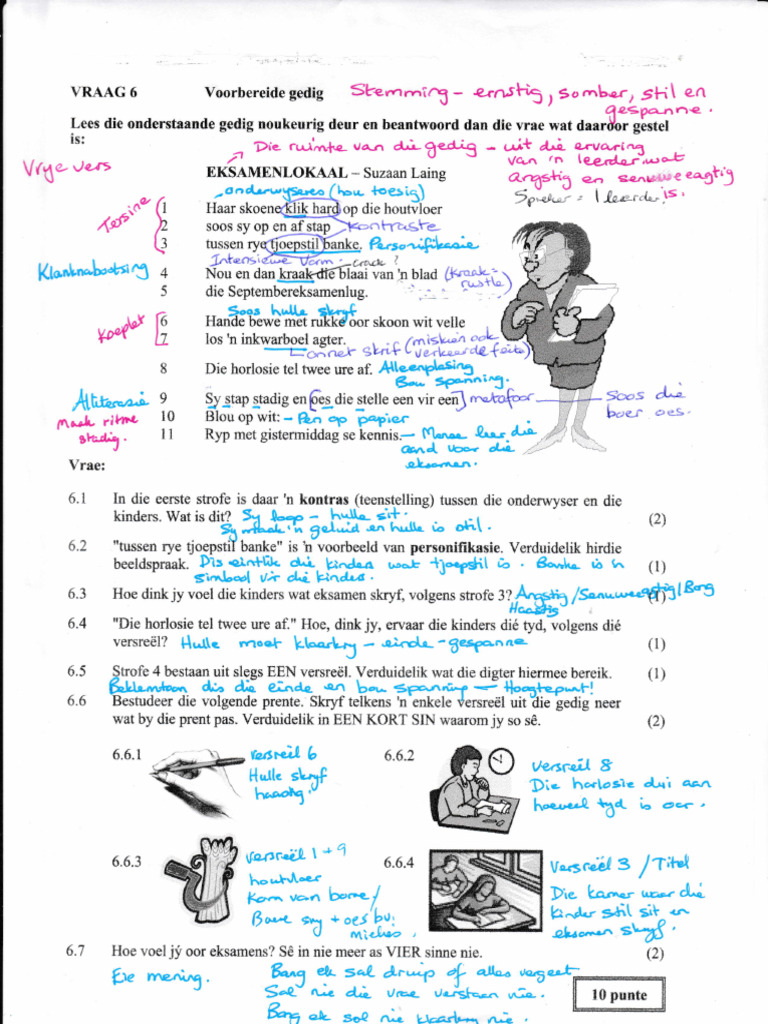 VRAAG 6 Voorbereide gedig Stemming - ernstig, somber, stil en
gespanne.
Lees die onderstaande gedig noukeurig deur en beantwoord dan die vrae wat daaroor gestel
is:
Die ruimte van die gedig - uit die ervaring
van 'n leerder wat
angstig en senuweeagtig
is.
Spreker = 1 leerder
Vrye vers
EKSAMENLOKAAL – Suzaan Laing
onderwyseres (hou toesig)
Tersine
1 Haar skoene klik hard op die houtvloer
2 soos sy op en af stap kontraste
3 tussen rye tjoepstil banke. Personifikasie
Intensiewe vorm. crack?
Klanknabootsing 4 Nou en dan kraak die blaai van 'n blad (kraak = rustle)
5 die Septembereksamenlug.
Soos hulle skryf
Koeplet
6 Hande bewe met rukke oor skoon wit velle
7 los 'n inkwarboel agter. (miskien ook
onnet skrif verkeerde feite)
8 Die horlosie tel twee ure af. Alleenplasing
Bou spanning.
Alliterasie 9 Sy stap stadig en oes die stelle een vir een metafoor Soos die
boer oes.
Maak ritme
stadig.
10 Blou op wit: - Pen op papier
11 Ryp met gistermiddag se kennis. - Mense leer die
aand voor die
eksamen.
Vrae:
6.1 In die eerste strofe is daar 'n kontras (teenstelling) tussen die onderwyser en die
kinders. Wat is dit? Sy loop - hulle sit. (2)
Sy maak 'n geluid en hulle is stil.
6.2 "tussen rye tjoepstil banke" is 'n voorbeeld van personifikasie. Verduidelik hirdie
beeldspraak. Dis eintlik die kinders wat tjoepstil is. Banke is 'n (1)
simbool vir die kinders.
6.3 Hoe dink jy voel die kinders wat eksamen skryf, volgens strofe 3? Angstig/Senuweeagtig/Bang (1)
Haastig
6.4 "Die horlosie tel twee ure af." Hoe, dink jy, ervaar die kinders dié tyd, volgens dié
versreël? Hulle moet klaarkry - einde - gespanne (1)
6.5 Strofe 4 bestaan uit slegs EEN versreël. Verduidelik wat die digter hiermee bereik. (1)
Beklemtoon dis die einde en bou spanning - Hoogtepunt!
6.6 Bestudeer die volgende prente. Skryf telkens 'n enkele versreël uit die gedig neer
wat by die prent pas. Verduidelik in EEN KORT SIN waarom jy so sê. (2)
6.6.1 versreël 6
Hulle skryf
haastig.
6.6.2 versreël 8
Die horlosie dui aan
hoeveel tyd is oor.
6.6.3 versreël 1 + 9
houtvloer
Kom van bome/
Boere sny + oes bv.
mielies
6.6.4 Versreël 3 / Titel
Die kamer waar die
kinder stil sit en
eksamen skryf.
6.7 Hoe voel jý oor eksamens? Sê in nie meer as VIER sinne nie. (2)
Eie mening. Bang ek sal druip of alles vergeet
Sal nie die vrae verstaan nie.
Bang ek sal nie klaarkry nie.
10 punte